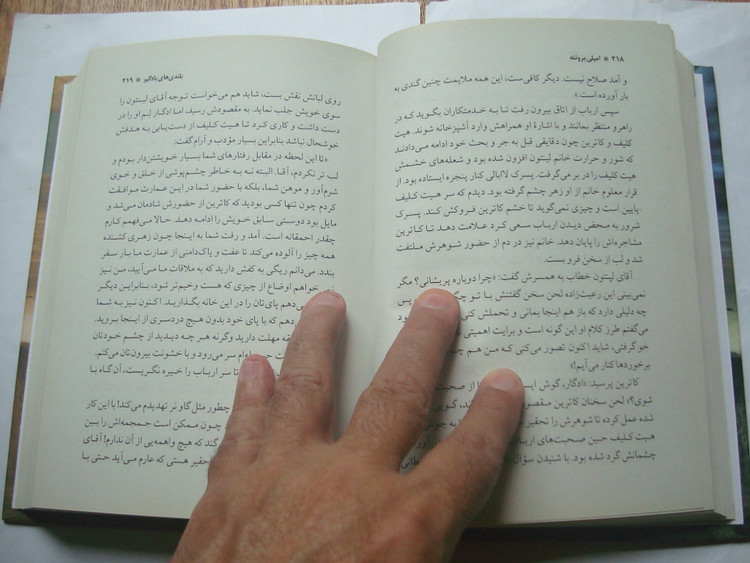 ۲۱۸ * امیلی برونته
و آمد صلاح نیست. دیگر کافی‌ست، این همه ملایمت چنین گندی به
بار آورده است.»
سپس ارباب از اتاق بیرون رفت تا به خدمتکاران بگوید که در
راهرو منتظر بمانند و با اشارهٔ او همراهش وارد آشپزخانه شوند. هیت
کلیف و کاترین چون دقایقی قبل به جر و بحث خود ادامه می‌دادند
که شور و حرارت خانم لینتون افزون شده بود و شعله‌های خشمش
هیت کلیف را در بر می‌گرفت. پسرک لاابالی کنار پنجره ایستاده بود. از
قرار معلوم خانم از او زهر چشم گرفته بود. دیدم که سر هیت کلیف
پایین است و چیزی نمی‌گوید تا خشم کاترین فروکش کند. پسرک
شرور به محض دیدن ارباب سعی کرد علامت دهد تا کاترین
مشاجره‌اش را پایان دهد. خانم نیز در دم از حضور شوهرش ملتفت
شد و لب از سخن فرو بست.
آقای لینتون خطاب به همسرش گفت: «چرا دوباره پریشانی؟ مگر
نمی‌بینی این رعیت‌زاده لحن سخن گفتنش با تو
چه دلیلی دارد که باز هم اینجا بمانی و تحملش کنی
می‌گفتم طرز کلام او این گونه است و برایت اهمیتی
خو گرفتی، شاید اکنون تصور می‌کنی که من هم
برخوردها کنار می‌آیم!»
کاترین پرسید: «ادگار، گوش از صحبت
شوی؟» لحن سخنان کاترین
شده عمل کرده تا شوهرش را تحقیر به جوش
هیت کلیف حین صحبت‌های ارباب
چشمانش گرد شده بود. با شنیدن سؤال
بلندی‌های بادگیر * ۲۱۹
روی لبانش نقش بست، شاید هم می‌خواست توجه آقای لینتون را
به سوی خویش جلب نماید. به مقصودش رسید، اما ادگار لِم او را در
دست داشت و کاری کرد تا هیت کلیف از دست‌یابی به هدفش
خوشحال نباشد بنابراین بسیار مؤدب و آرام گفت:
«تا این لحظه در مقابل رفتارهای شما بسیار خویشتن‌دار بودم و
لب تر نکردم، آقا. البته نه به خاطر چشم‌پوشی از خلق و خوی
شرم‌آور و موهن شما، بلکه با حضور شما در این عمارت موافقت
کردم چون تنها کسی بودید که کاترین از حضورش شادمان می‌شد و
مایل بود دوستی سابق خویش را ادامه دهد. حالا می‌فهمم کارم
چقدر احمقانه است. آمد و رفت شما به اینجا چون زهری کشنده
همه چیز را آلوده می‌کند تا عفت و پاک‌دامنی از عمارت ما بار سفر
بندد. می‌دانم ریگی به کفش دارید که به ملاقات ما می‌آیید، من نیز
نمی‌خواهم اوضاع از چیزی که هست وخیم‌تر شود، بنابراین دیگر
دهم پای‌تان را در این خانه بگذارید. اکنون نیز به شما
دهم که با پای خود بدون هیچ دردسری از اینجا بروید.
مهلت دارید وگرنه هر چه دیدید از چشم خودتان
سر می‌رود و با خشونت بیرون‌تان می‌کنم.
تا سر ارباب را خیره نگریست، آن گاه با
چطور مثل گاو نر تهدیدم می‌کند! با این کار
چون ممکن است جمجمه‌اش را بین
گند که هیچ واهمه‌یی از آن ندارم! آقای
حقیر هستی که عارم می‌آید حتی با